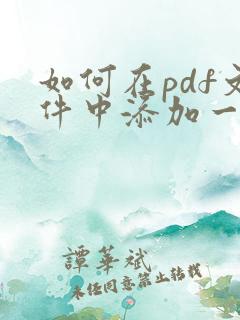 如何在pdf文
件中添加一
譚華斌
未经同意禁止转载